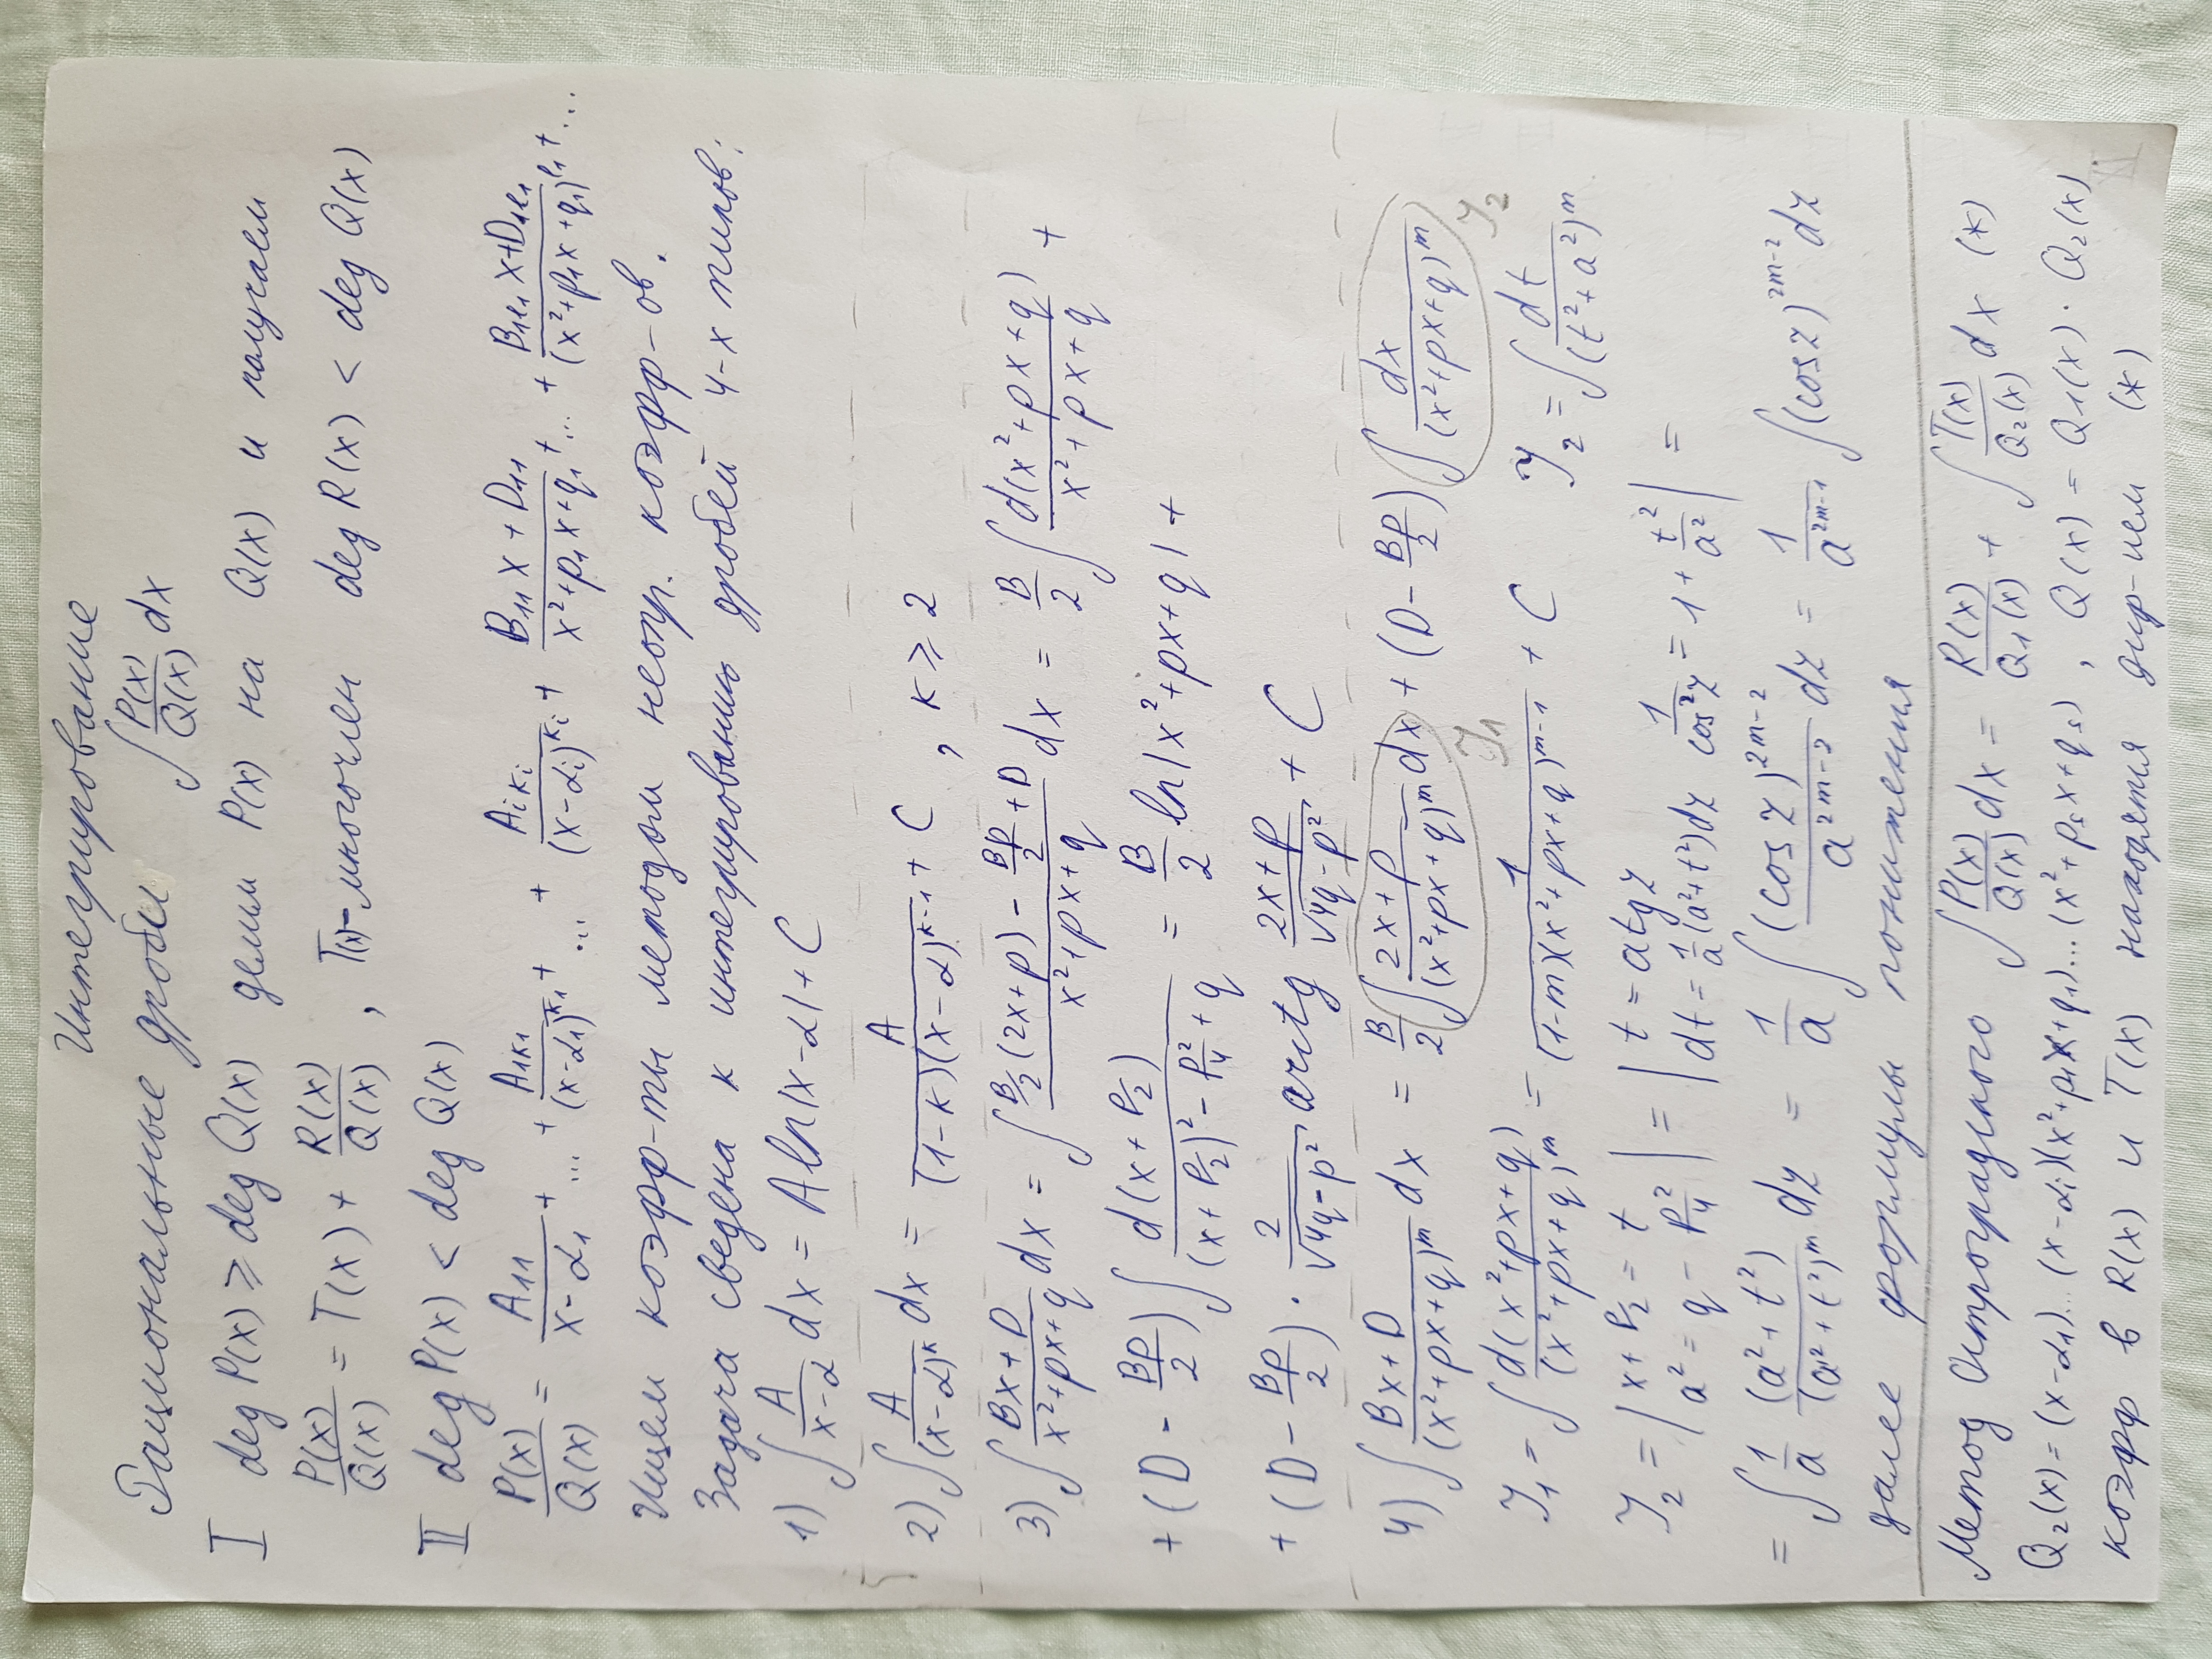 Интегрирование
Рациональные дроби ∫ P(x)/Q(x) dx
I deg P(x) ≥ deg Q(x) делим P(x) на Q(x) и получаем
P(x)/Q(x) = T(x) + R(x)/Q(x), T(x)-многочлен deg R(x) < deg Q(x)
II deg P(x) < deg Q(x)
P(x)/Q(x) = A₁₁/(x-α₁) + ... + A₁ₖ₁/(x-α₁)^k₁ + ... + Aᵢₖᵢ/(x-αᵢ)^kᵢ + (B₁₁x+D₁₁)/(x²+p₁x+q₁) + ... + (B₁ₗ₁x+D₁ₗ₁)/(x²+p₁x+q₁)^l₁ + ...
Ищем коэфф-ты методом неопр. коэфф-ов.
Задача сведена к интегрированию дробей 4-х типов:
1) ∫ A/(x-α) dx = A ln|x-α| + C
2) ∫ A/(x-α)^k dx = A/((1-k)(x-α)^(k-1)) + C, k ≥ 2
3) ∫ (Bx+D)/(x²+px+q) dx = ∫ (B/2(2x+p) - Bp/2 + D)/(x²+px+q) dx = B/2 ∫ d(x²+px+q)/(x²+px+q) +
+ (D - Bp/2) ∫ d(x+p/2)/((x+p/2)² - p²/4 + q) = B/2 ln|x²+px+q| +
+ (D - Bp/2) · 2/√(4q-p²) arctg (2x+p)/√(4q-p²) + C
4) ∫ (Bx+D)/(x²+px+q)^m dx = B/2 ∫ (2x+p)/(x²+px+q)^m dx + (D - Bp/2) ∫ dx/(x²+px+q)^m
J₁ J₂
J₁ = ∫ d(x²+px+q)/(x²+px+q)^m = 1/((1-m)(x²+px+q)^(m-1)) + C J₂ = ∫ dt/(t²+a²)^m
J₂ = | x+p/2 = t a² = q - p²/4 | = | t = a tg z dt = 1/a (a²+t²)dz 1/cos²z = 1 + t²/a² | =
= ∫ 1/a (a²+t²)/(a²+t²)^m dz = 1/a ∫ (cos z)^(2m-2)/a^(2m-2) dz = 1/a^(2m-1) ∫ (cos z)^(2m-2) dz
далее формулы понижения
Метод Остроградского ∫ P(x)/Q(x) dx = R(x)/Q₁(x) + ∫ T(x)/Q₂(x) dx (*)
Q₂(x) = (x-α₁)...(x-αᵢ)(x²+p₁x+q₁)...(x²+pₛx+qₛ), Q(x) = Q₁(x)·Q₂(x)
коэфф в R(x) и T(x) находятся дир-ием (*)